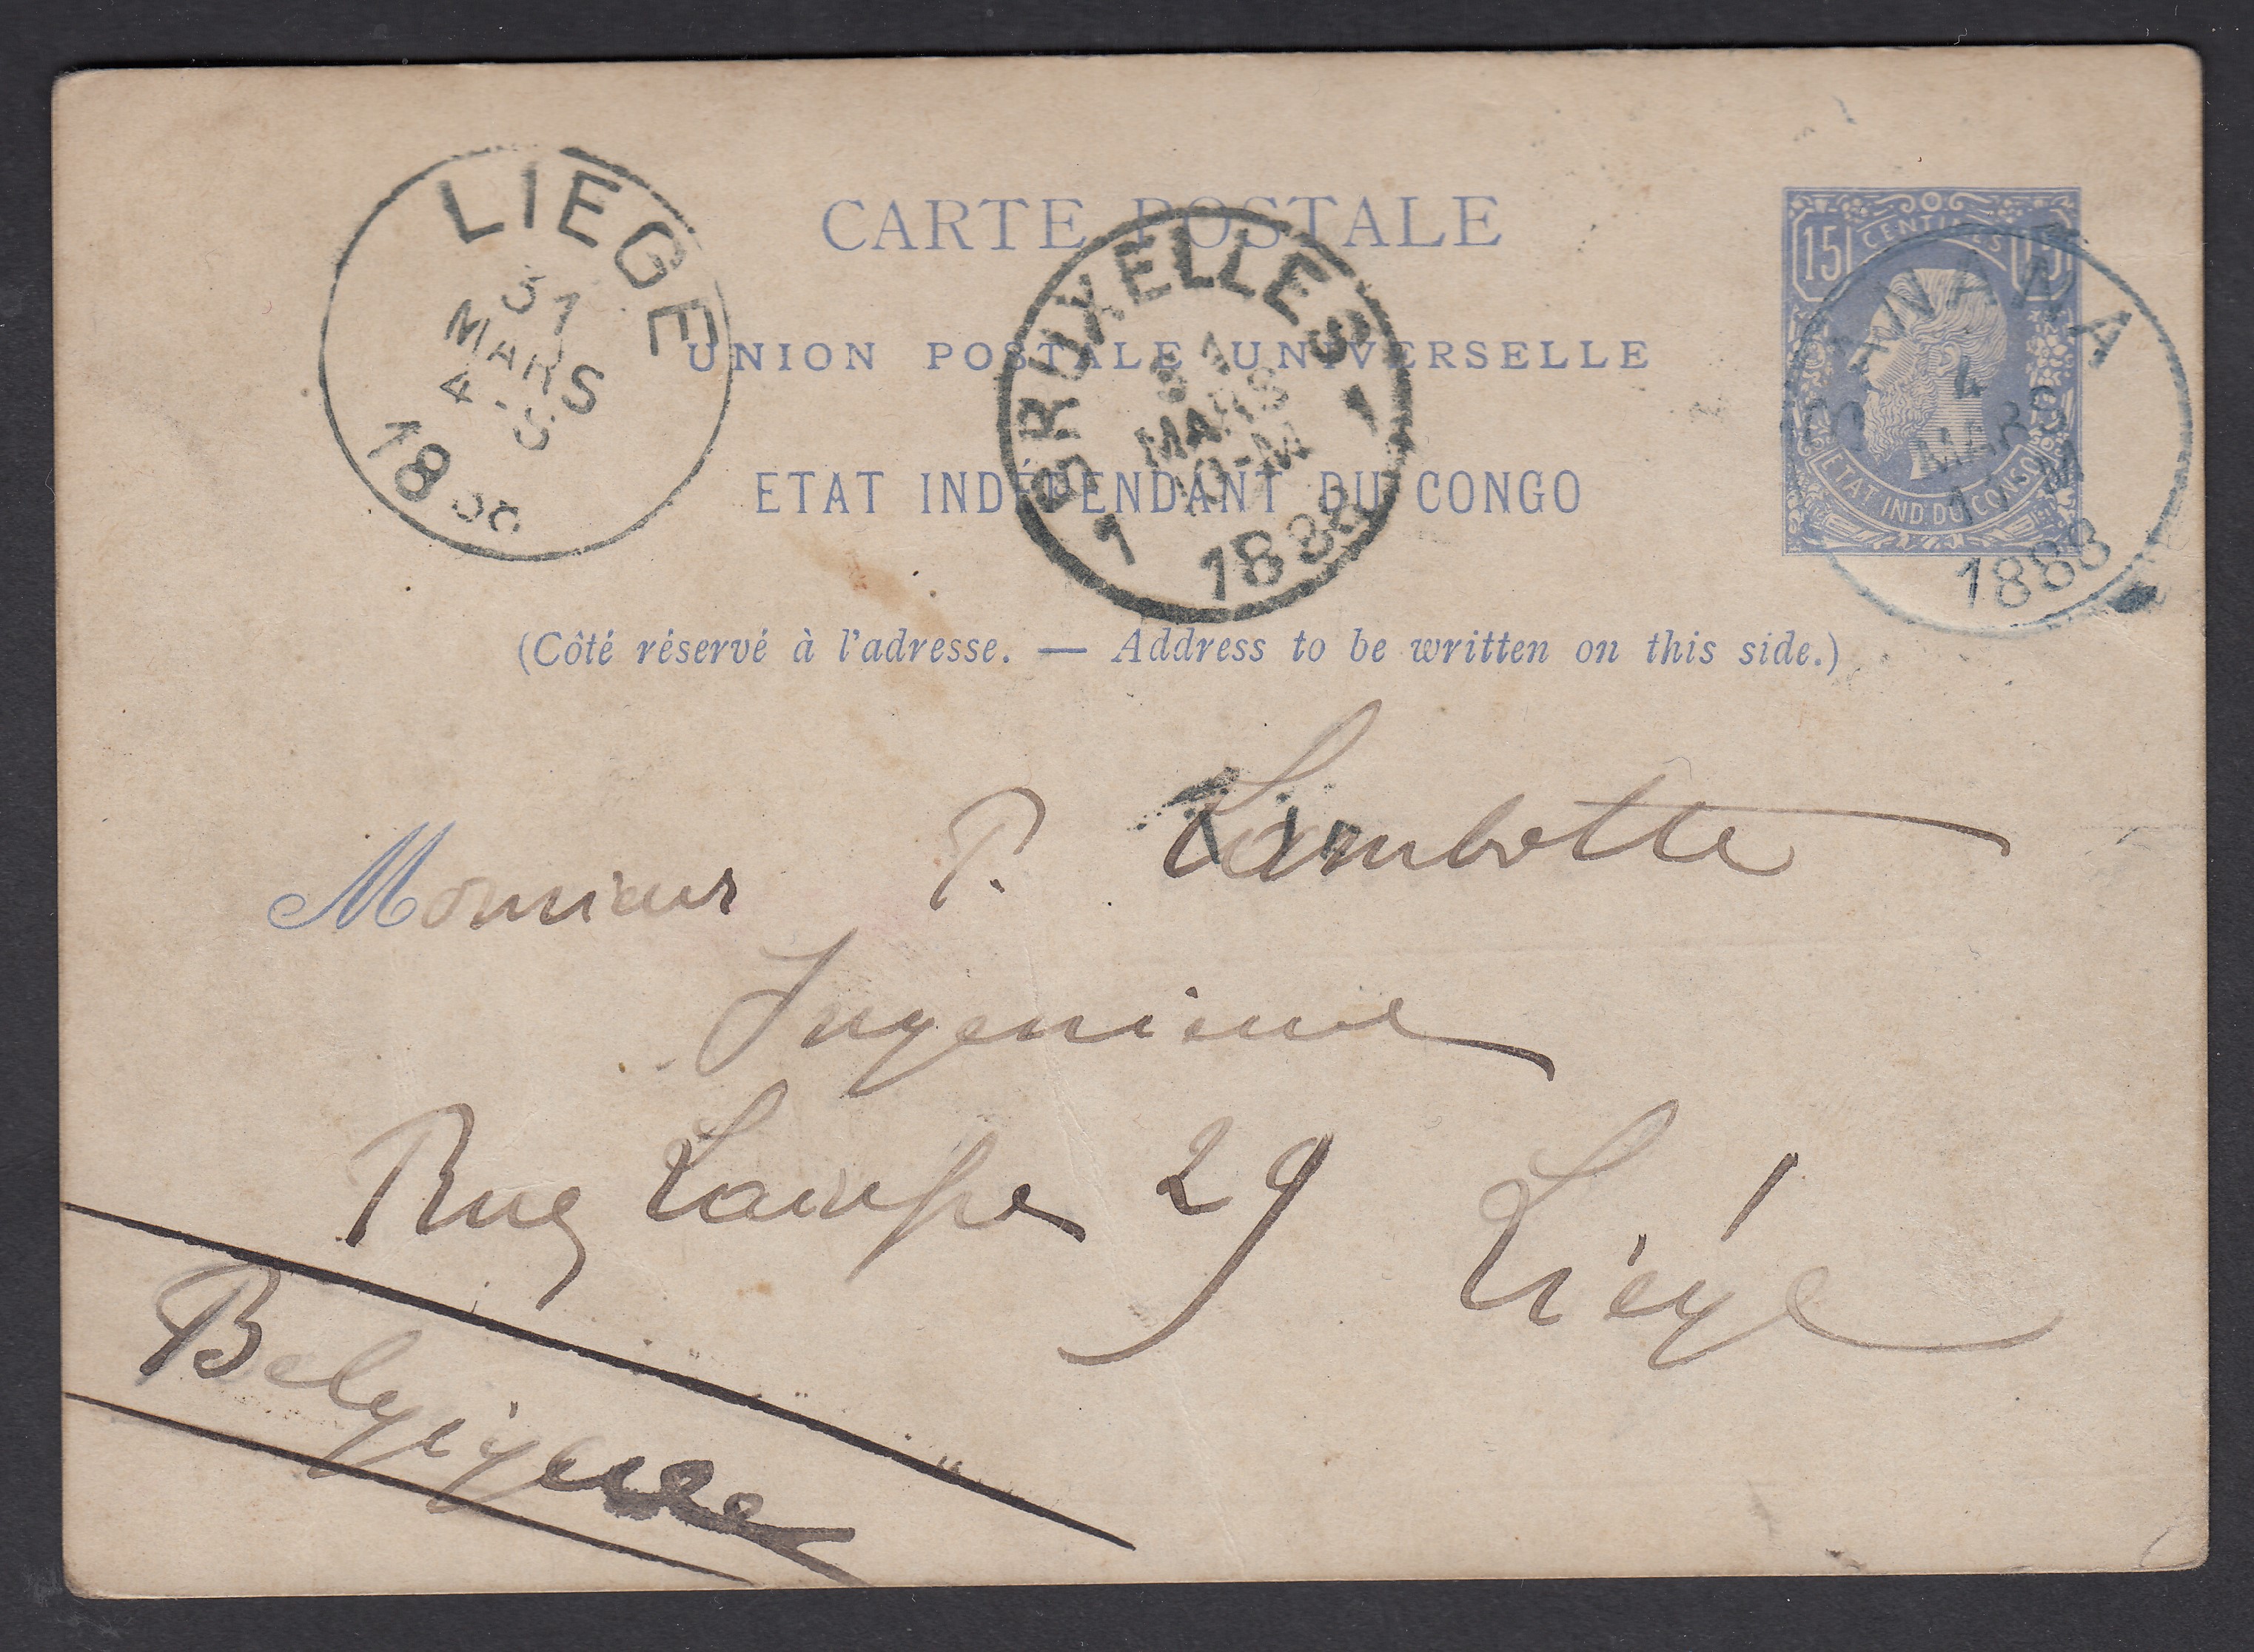 CARTE POSTALE
UNION POSTALE UNIVERSELLE
ETAT INDÉPENDANT DU CONGO
(Côté réservé à l'adresse. — Address to be written on this side.)
LIEGE
31
MARS
4-S
1888
BRUXELLES
1 1
31
MARS
10-M
1888
15 CENTIMES 15
ETAT IND. DU CONGO
BANANA
4
MARS
11-M
1888
Monsieur P. Lambotte
Ingenieur
Rue 29 Liége
Belgique